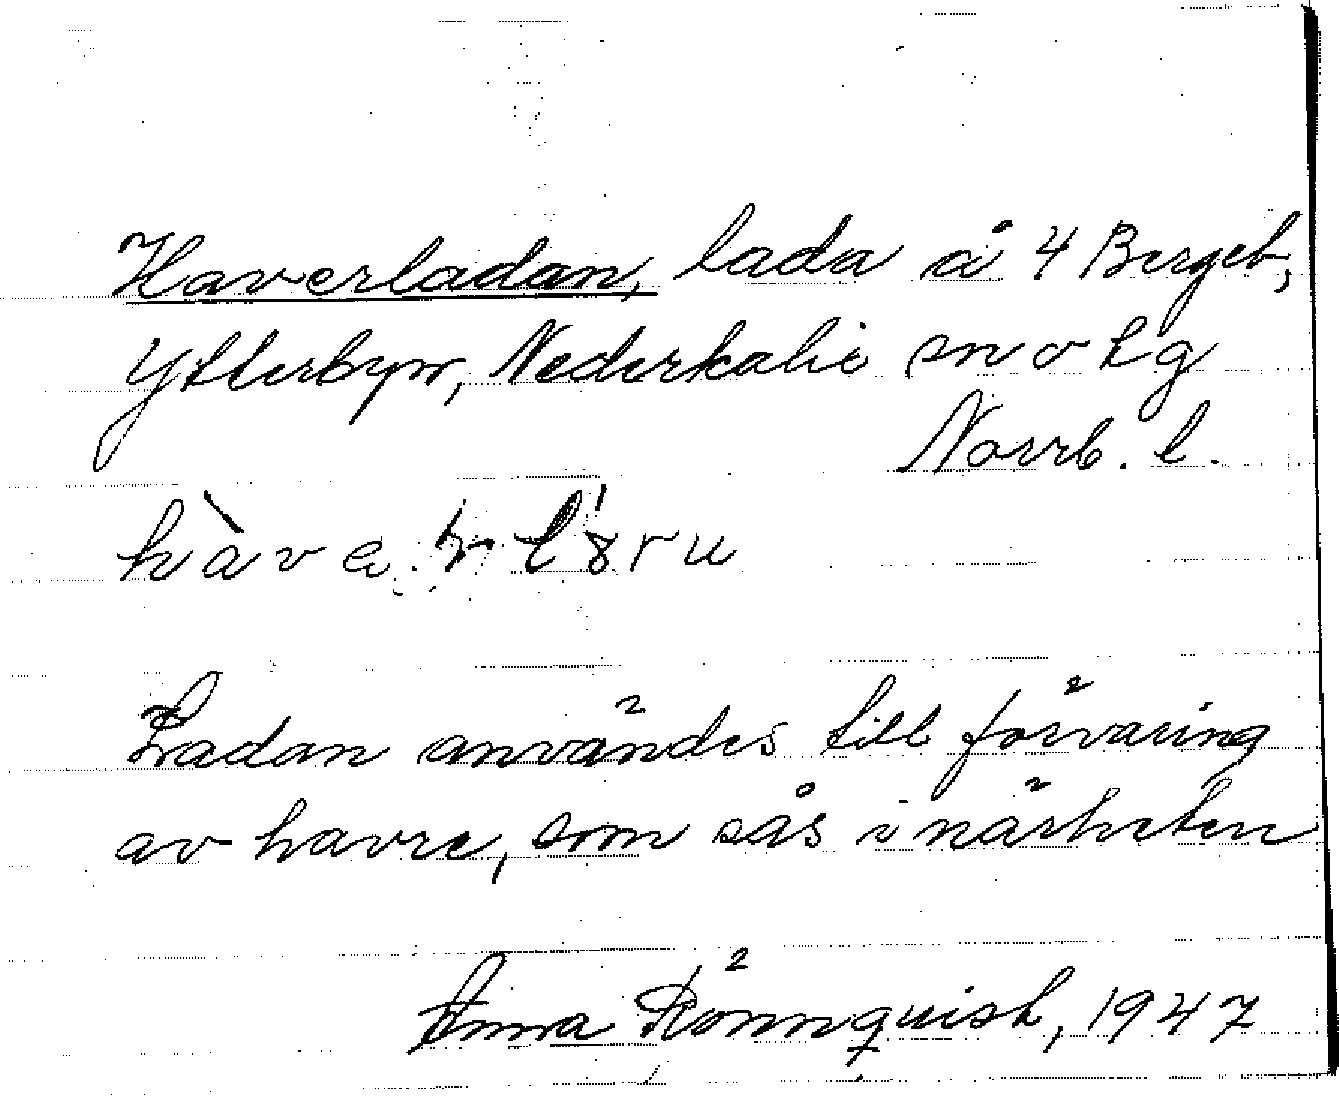 Haverladan, lada å 4 Bergeb,
Ytterbyn, Nederkalix sn o tg
Norrb. l.
hàve
Ladan användes till förvaring
av havre, som sås i närheten
Anna Rönnquist, 1947